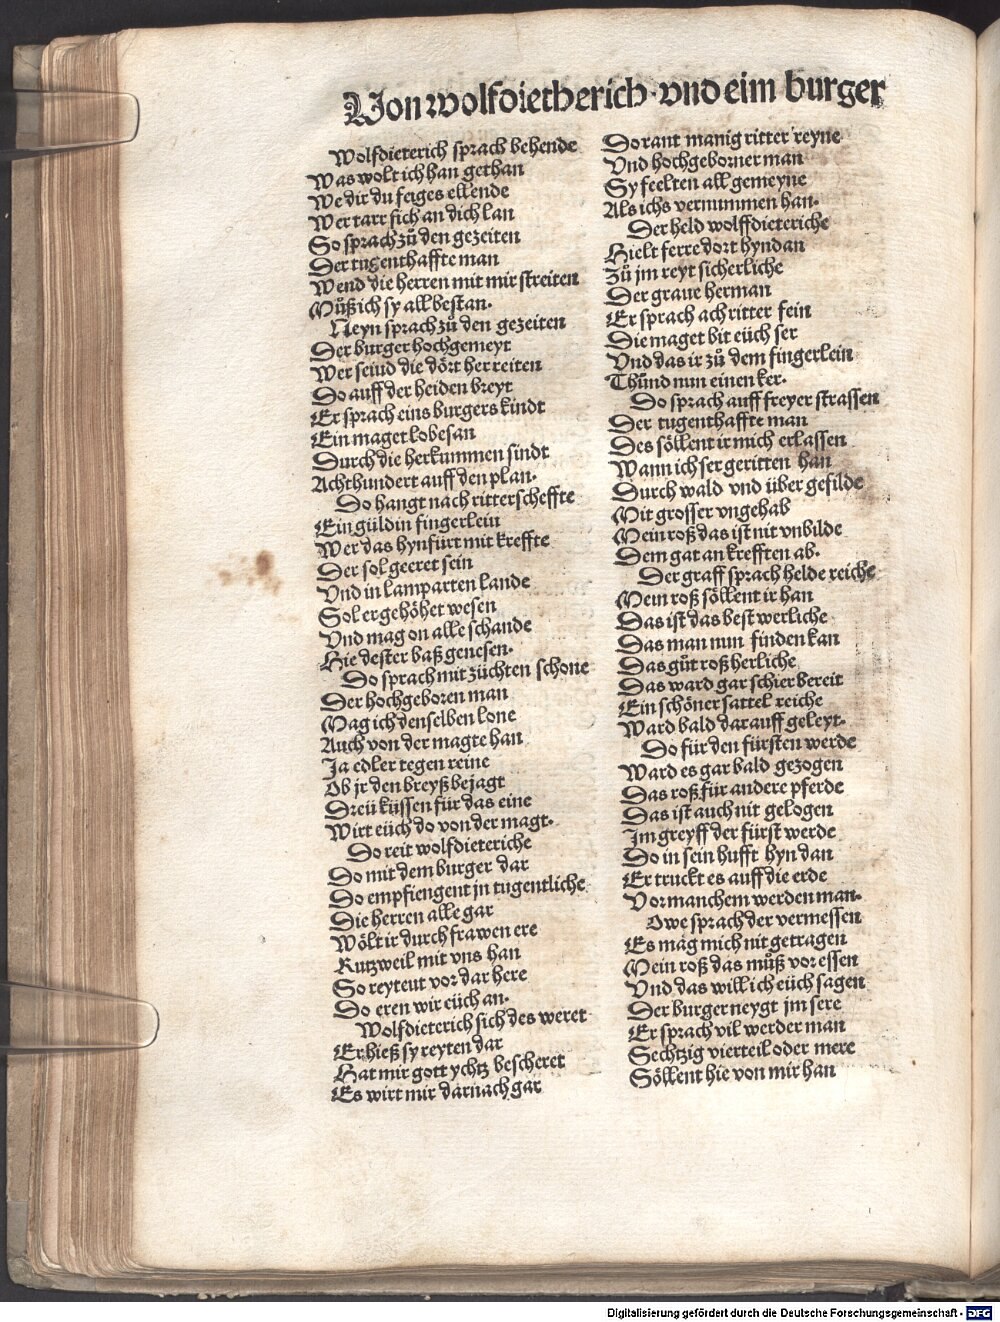 Von wolfdietherich vnd eim burger
Wolfdieterich sprach behende
Was wolt ich han gethan
We dir du feiges ellende
Wer tarr sich an dich lan
So sprach zuͦ den gezeiten
Der tugenthaffte man
Wend die herren mit mir streiten
Muͤß ich sy all bestan.
Neyn sprach zuͦ den gezeiten
Der burger hochgemeyt
Wer seind die dört her reiten
Do auff der heiden breyt
Er sprach eins burgers kindt
Ein maget lobesan
Durch die herkummen sindt
Achthundert auff den plan.
Do hangt nach ritterscheffte
Ein güldin fingerlein
Wer das hynfürt mit kreffte
Der sol geeret sein
Vnd in lamparten lande
Sol er gehöhet wesen
Vnd mag on alle schande
Hie dester baß genesen.
Do sprach mit züchten schone
Der hochgeboren man
Mag ich denselben lone
Auch von der magte han
Ja edler tegen reine
Ob jr den breyß bejagt
Dreü küssen für das eine
Wirt eüch do von der magt.
Do reit wolfdieteriche
Do mit dem burger dar
Do empfiengent in tugentliche
Die herren alle gar
Wölt ir durch frawen ere
Kutzweil mit vns han
So reytent vor dar here
Do eren wir eüch an.
Wolfdieterich sich des weret
Er hieß sy reyten dar
Hat mir gott ychtz bescheret
Es wirt mir darnach gar
Do rant manig ritter reyne
Vnd hochgeborner man
Sy feelten all gemeyne
Als ichs vernummen han.
Der held wolffdieteriche
Hielt ferre dort hyndan
Zuͦ jm reyt sicherliche
Der graue herman
Er sprach ach ritter fein
Die maget bit eüch ser
Vnd das ir zuͦ dem fingerlein
Thuͤnd nun einen ker.
Do sprach auff freyer strassen
Der tugenthaffte man
Des söllent ir mich erlassen
Wann ich ser geritten han
Durch wald vnd über gefilde
Mit grosser vngehab
Mein roß das ist nit vnbilde
Dem gat an krefften ab.
Der graff sprach helde reiche
Mein roß söllent ir han
Das ist das best werliche
Das man nun finden kan
Das guͦt roß herliche
Das ward gar schier bereit
Ein schöner sattel reiche
Ward bald darauff geleyt.
Do für den fürsten werde
Ward es gar bald gezogen
Das roß für andere pferde
Das ist auch nit gelogen
Im greyff der fürst werde
Do in sein hufft hyn dan
Er truckt es auff die erde
Vor manchem werden man.
Owe sprach der vermessen
Es mag mich nit getragen
Mein roß das muͦß vor essen
Vnd das will ich eüch sagen
Der burger neygt jm sere
Er sprach vil werder man
Sechtzig vierteil oder mere
Söllent hie von mir han
Digitalisierung gefördert durch die Deutsche Forschungsgemeinschaft - DFG